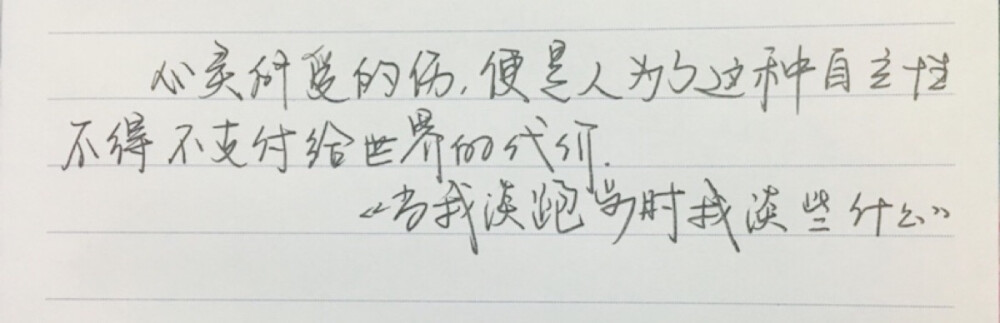 心灵所受的伤,便是人为了这种自主性
不得不支付给世界的代价.
《当我谈跑步时我谈些什么》